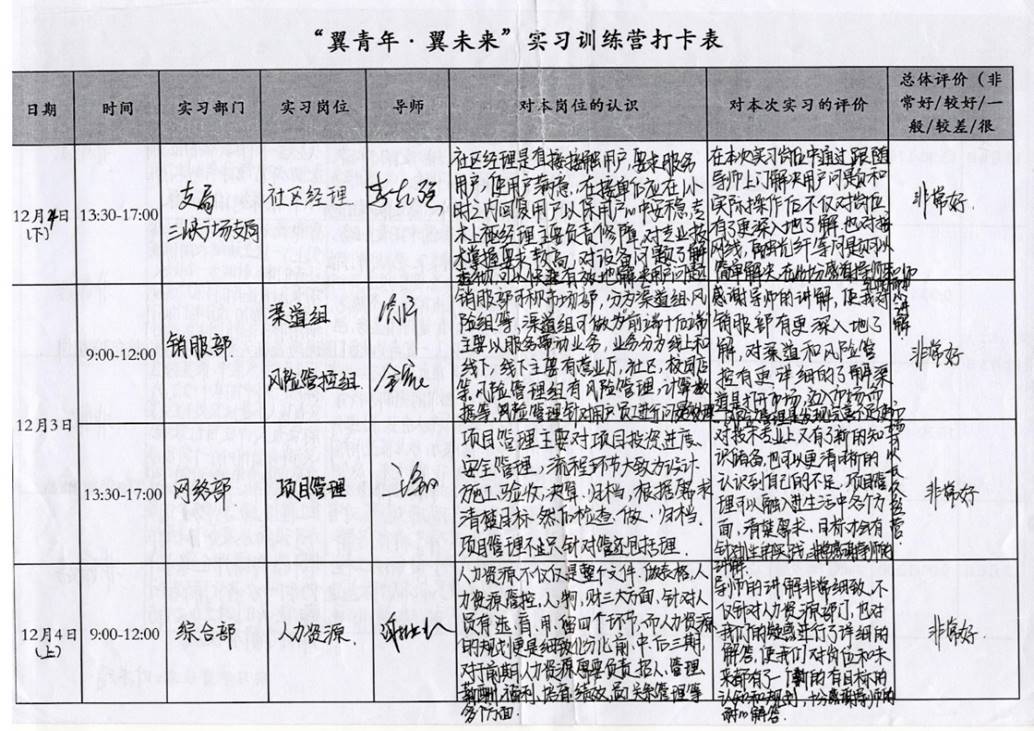 “翼青年·翼未来”实习训练营打卡表
日期
时间
实习部门
实习岗位
导师
对本岗位的认识
对本次实习的评价
总体评价（非
常好/较好/一
般/较差/很
12月4日
(下)
13:30-17:00
支局
三峡广场支局
社区经理
社区经理是直接接触用户,要来服务
用户,使用户满意,在接单后应在1小
时之内回复用户以保用户心中安稳,
术上社区经理主要负责修障,对专业技
术掌握要求较高,对设备问题了解
在本次实习岗位中通过跟随
导师上门解决用户问题和
实际操作后不仅对岗位
有了更深入地了解,也对接
网线,融光纤等问题可以
简单解决,在此十分感谢导师
非常好.
12月3日
9:00-12:00
销服部
渠道组
风险管控组
销服部可称市场部,分为渠道组、风
险组等,渠道组可做为前端十后端
主要以服务带动业务,业务分为线上和
线下,线下主要有营业厅,社区,校园店
等.风险管理组有风险管理,计算数
据等,风险管理针对用户
感谢导师的讲解,使我对
销服部有更深入地了
解,对渠道和风险管
控有更详细的了解
非常好
13:30-17:00
网络部
项目管理
项目管理主要对项目投资进度、
安全管理,流程环节大致为设计、
施工、验收、决算、归档,根据需求
清楚目标,然后检查、做、归档.
项目管理不止只针对
对技术专业上又有了新的知
识储备,也可以更清晰的
认识到自己的不足,项目管
理可以融入进生活中各个方
面,清楚要求,目标才会有
非常好
12月4日
(上)
9:00-12:00
综合部
人力资源.
人力资源不仅仅是整个文件、做表格,人
力资源管控,人,物,财三大方面,针对人
员有进,育,用,留四个环节,而人力资源
的规划更是细致化分化前、中、后三期,
对于前期人力资源需要负责招人、管理
薪酬、福利,
多个方面.
导师的讲解非常细致,不
仅针对人力资源部门,也对
我们的疑惑进行了详细的
解答,使我们对岗位和未
来都有了一个新的有目标的
认知和规划,十分感谢导师的
耐心解答.
非常好.